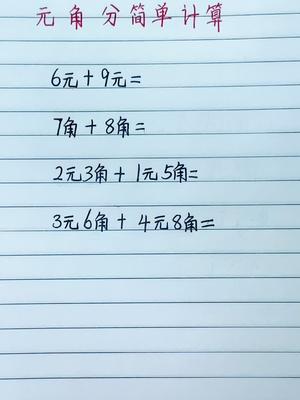 元角分简单计算
6元+9元=
7角+8角=
2元3角+1元5角=
3元6角+4元8角=